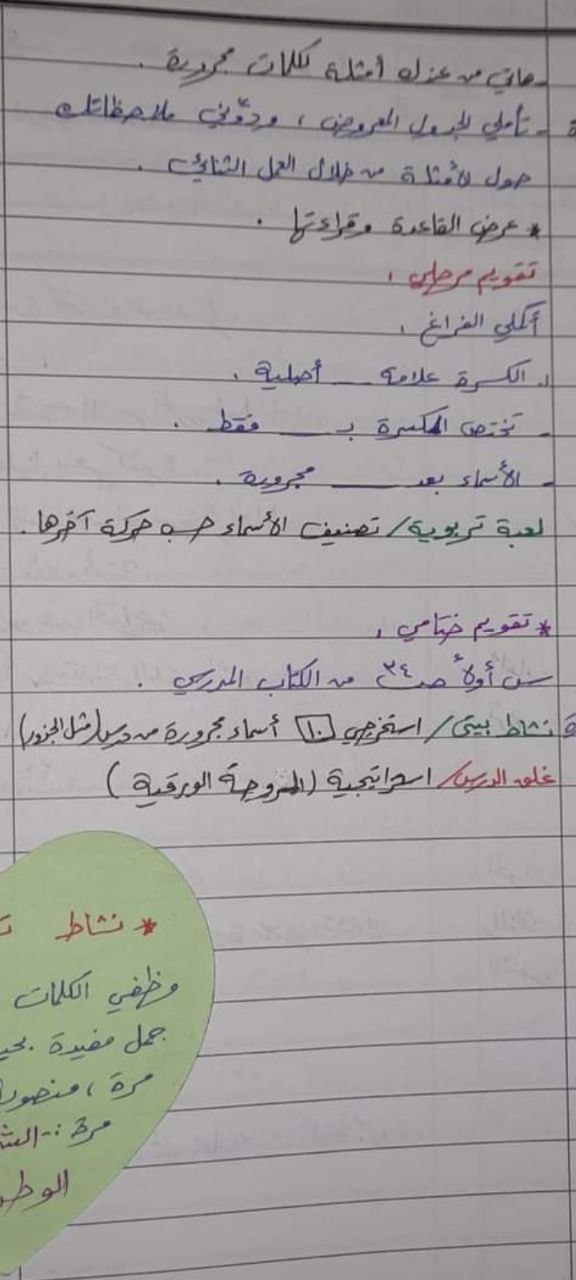 - هاتي من عندك أمثلة لكلمات مجرورة .
- تأملي الجدول المعروض ، ودوّني ملاحظاتك
حول الأمثلة من خلال العمل الثنائي .
* عرض القاعدة وقراءتها .
تقويم مرحلي :
أكملي الفراغ :
١. الكسرة علامة ___ أصلية .
- تختص الكسرة بـ ___ فقط .
- الأسماء بعد ___ مجرورة .
لعبة تربوية / تصنيف الأسماء حسب حركة آخرها .
* تقويم ختامي :
س أولاً صـ ٣٤ من الكتاب المدرسي .
نشاط بيتي / استخرجي ١٠ أسماء مجرورة من درس (مثل الجزور)
غلق الدرس / استراتيجية (المروحة الورقية)
* نشاط
وظفي الكلمات
جمل مفيدة
مرة ، منصور
مرة :-
الوطن